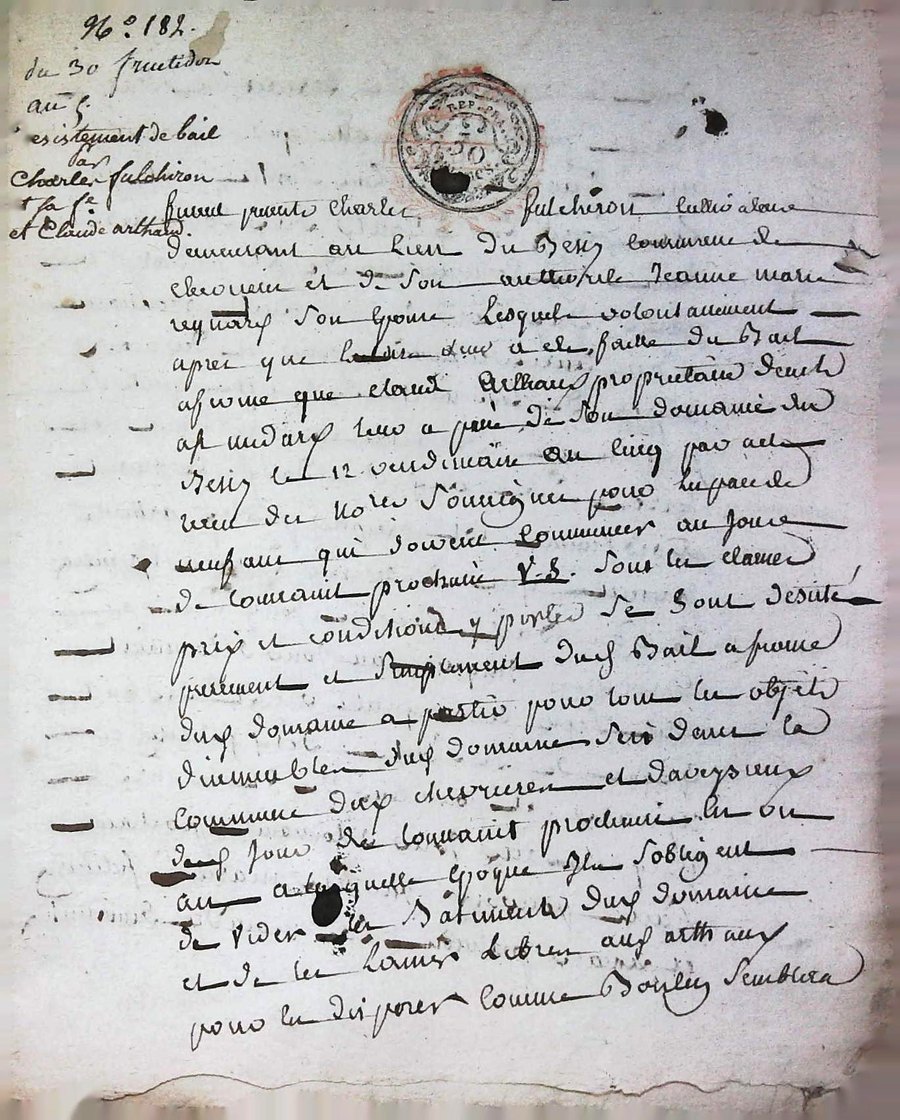 N.° 182.
du 30 fructidor
an 5.
esistement de bail
par
Charles fulchiron
& sa fe
et Claude arthaud.
REP. FRA.
50
furent presents Charles fulchiron cultivateur
demeurant au lieu du Besy commune de
chevrieres et de son authorité Jeanne marie
reynard son Epouse Lesquels volontairement
apres que lecture leur a été faitte du Bail
afserme que claude Arthaud propriétaire de
st medard leur a passé de son domaine du
Besy le 12 vendemiaire an cinq par acte
reçu des Nores Soussignés pour lespace de
neuf ans qui doivent Commencer au Jour
de toussaint prochain V.S. sous les clauses
prix et conditions y portés se sont desisté
purement et simplement dud Bail a ferme
dud domaine a partir pour tous les objets
dimmeubles dud domaine Sis dans la
commune de chevrieres et daveysieux
dud Jour de toussaint prochain en un
an a laquelle Epoque Ils sobligent
de vider les Batiments dud domaine
et de les Laisser Libres aud arthaud
pour en disposer comme Bon luy semblera